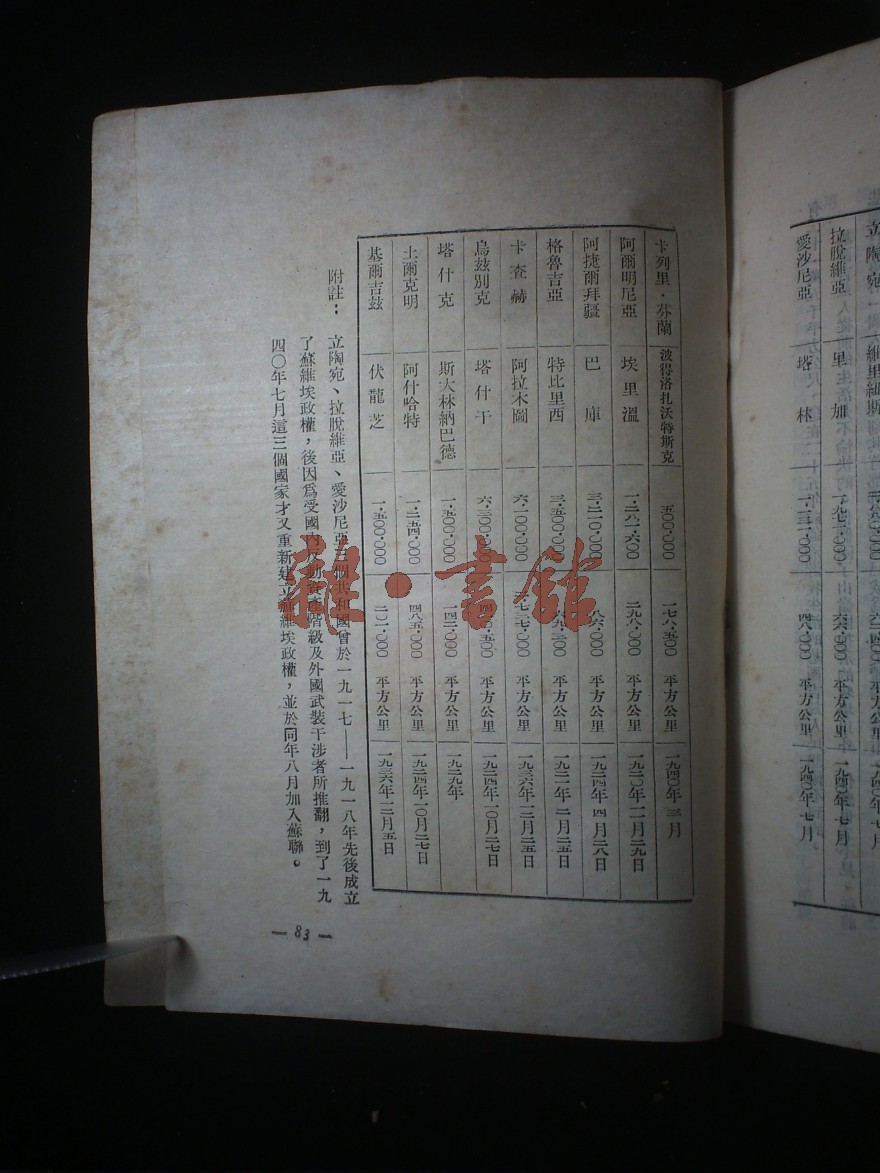 立陶宛
拉脫維亞 里加 平方公里 一九四〇年七月
愛沙尼亞 塔林 平方公里 一九四〇年七月
卡列里·芬蘭 波得洛扎沃特斯克 五〇〇·〇〇〇 一七八·五〇〇 平方公里 一九四〇年三月
阿爾明尼亞 埃里溫 一·二八一·六〇〇 二九八·〇〇〇 平方公里 一九二〇年一一月二九日
阿捷爾拜疆 巴庫 三·二一〇·〇〇〇 八六·〇〇〇 平方公里 一九二〇年四月二八日
格魯吉亞 特比里西 三·五〇〇·〇〇〇 六九·三〇〇 平方公里 一九二一年二月二五日
卡查赫 阿拉木圖 六·一〇〇·〇〇〇 平方公里 一九三六年一二月五日
烏茲別克 塔什干 平方公里 一九二四年一〇月二七日
塔什克 斯大林納巴德 一·五〇〇·〇〇〇 一四三·〇〇〇 平方公里 一九二九年
土爾克明 阿什哈特 一·二五四·〇〇〇 四八五·〇〇〇 平方公里 一九二四年一〇月二七日
基爾吉茲 伏龍芝 一·五〇〇·〇〇〇 二〇一·〇〇〇 平方公里 一九三六年一二月五日
附註： 立陶宛、拉脫維亞、愛沙尼亞三個共和國曾於一九一七——一九一八年先後成立
了蘇維埃政權，後因爲受國內反動資產階級及外國武裝干涉者所推翻，到了一九
四〇年七月這三個國家才又重新建立蘇維埃政權，並於同年八月加入蘇聯。
— 83 —
雜·書館